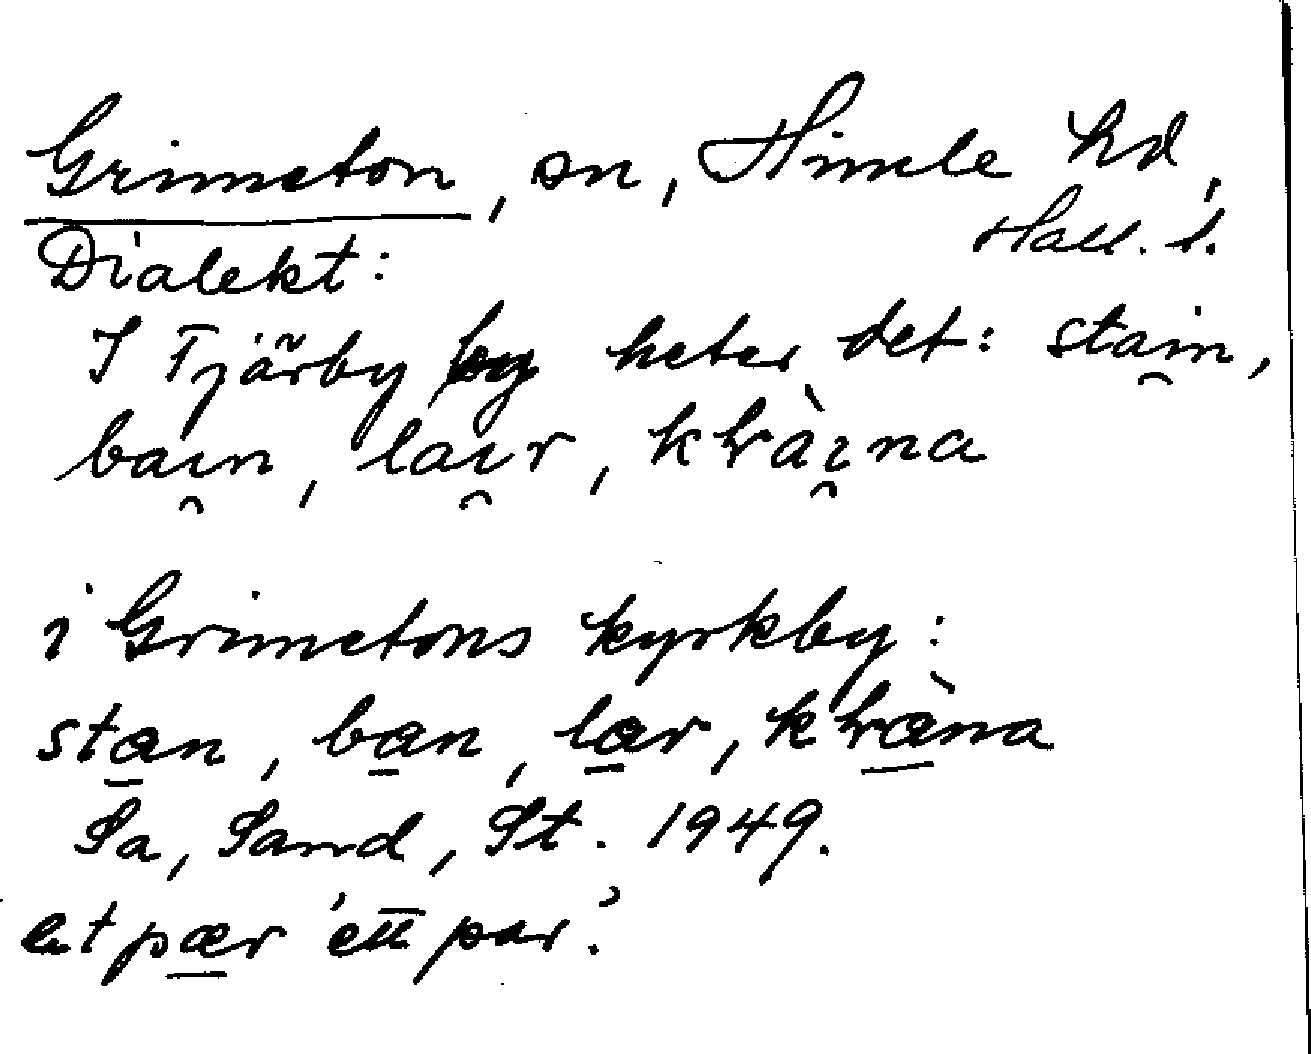 Grimeton, sn, Himle hd,
Hall. l.
Dialekt:
I Tjärby by heter det: stai̯n,
bai̯n, lai̯r, kwrài̯na
i Grimetons kyrkby:
stæ̱n, bæ̱n, læ̱r, kwræ̱̀na
Sa, Sand, St. 1949.
et pæ̱r 'ett par'.